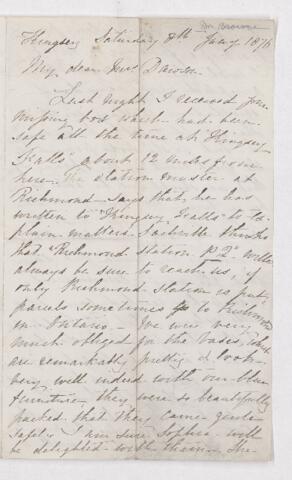 Mrs Browne
Kingsey Saturday 8th Jany 1876
My dear Mrs Dawson
Last night I received your
missing box which had been
safe all the time at "Kingsey
Falls" about 12 miles from
here. The station master at
Richmond says that he has
written to "Kingsey Falls" to ex-
plain matters. thinks
that "Richmond station P.Q." will
always be sure to reach us, if
only Richmond Station is put,
parcels sometimes go to Richmond
in Ontario — I've were very
much obliged for the vases, which
are remarkably pretty & look
very well indeed with our blue
furniture, they were so beautifully
packed that they came quite
safely. I am sure Sophia will
be delighted with them. She